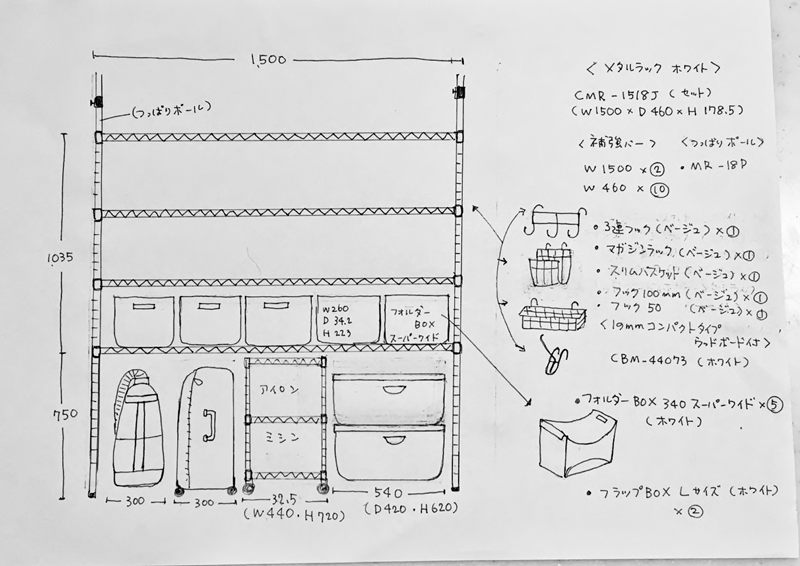 1,500
(つっぱりポール)
1035
750
W260
D 34.2
H 223
フォルダー
BOX
スーパーワイド
アイロン
ミシン
300
300
32.5
(W440・H720)
540
(D420・H620)
〈メタルラック ホワイト〉
CMR-1518J (セット)
(W1500×D460×H178.5)
〈補強バー〉 〈つっぱりポール〉
W1500×② ・MR-18P
W460×⑩
・3連フック(ベージュ)×①
・マガジンラック(ベージュ)×①
・スリムバスケット(ベージュ)×①
・フック100mm(ベージュ)×①
・フック50 (ベージュ)×①
〈19mmコンパクトタイプ
ウッドボード付〉
CBM-44073 (ホワイト)
・フォルダーBOX 340 スーパーワイド×⑤
(ホワイト)
・フラップBOX Lサイズ(ホワイト)
×②